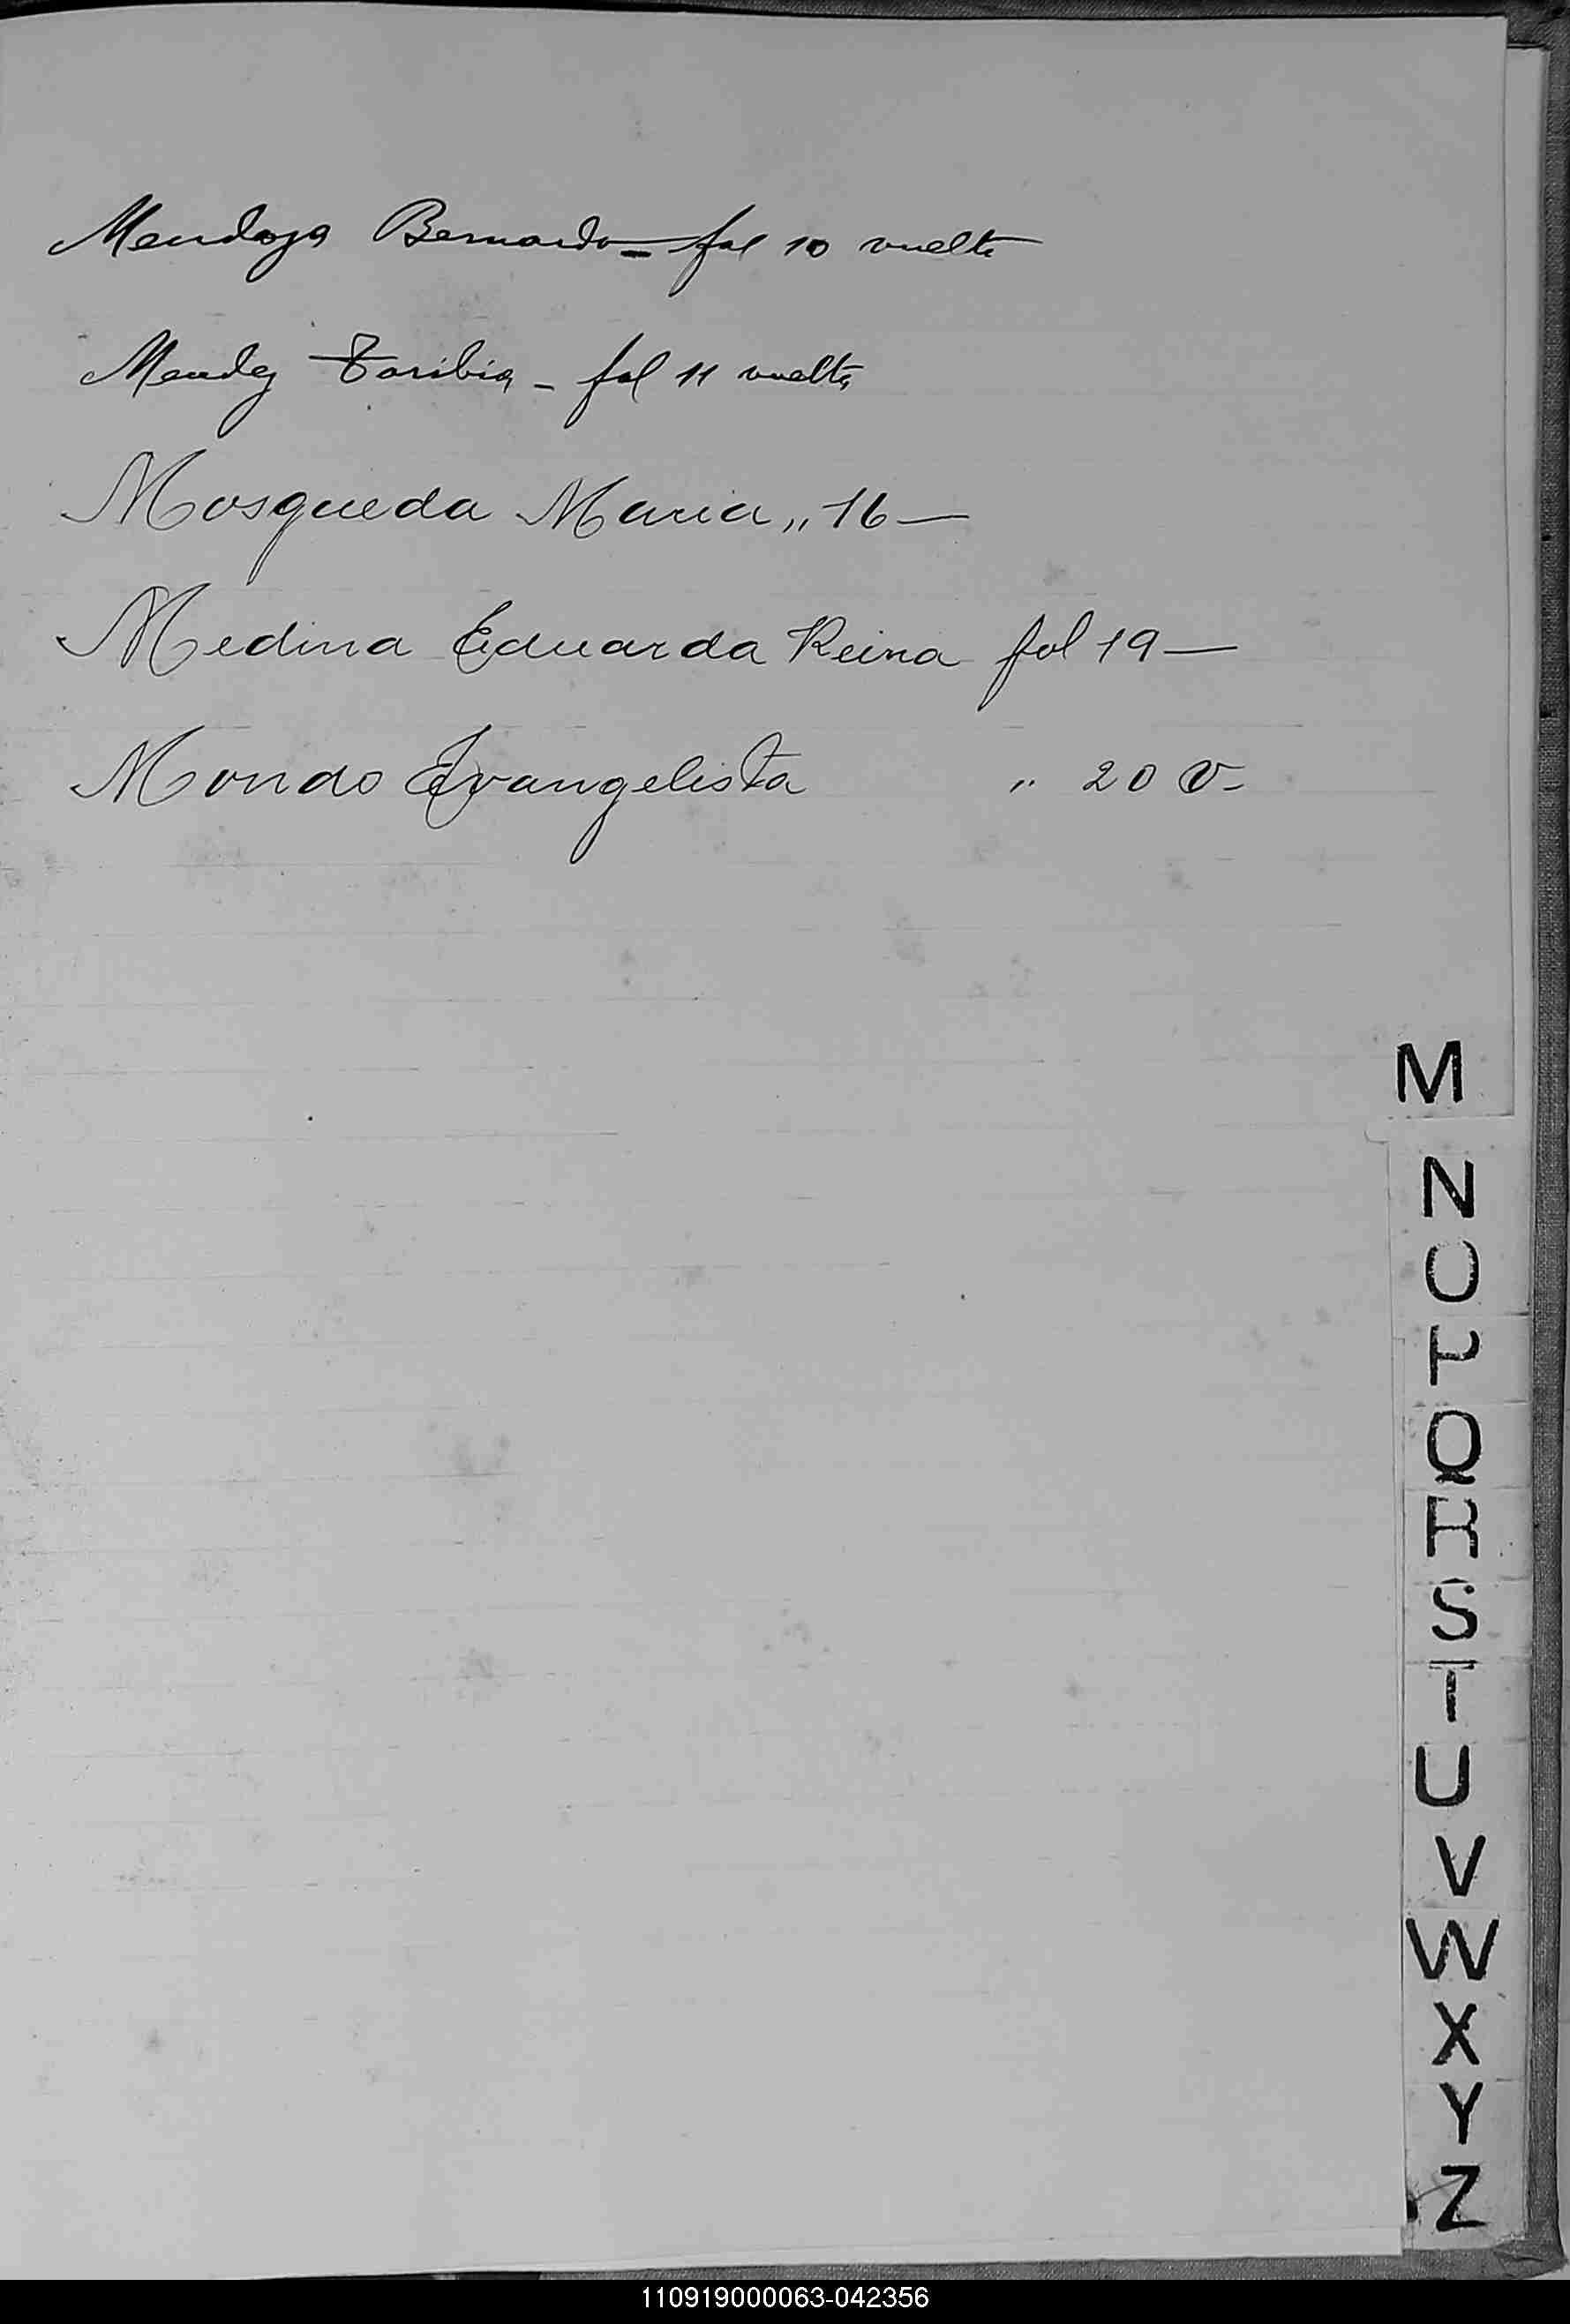 Mendoza Bernardo - fol 10 vuelta
Mendez Toribia - fol 11 vuelta
Mosqueda Maria ,, 16 —
Medina Eduarda Reina fol 19 —
Mondo Evangelista " 20 v -
M
N
O
P
Q
R
S
T
U
V
W
X
Y
Z
110919000063-042356